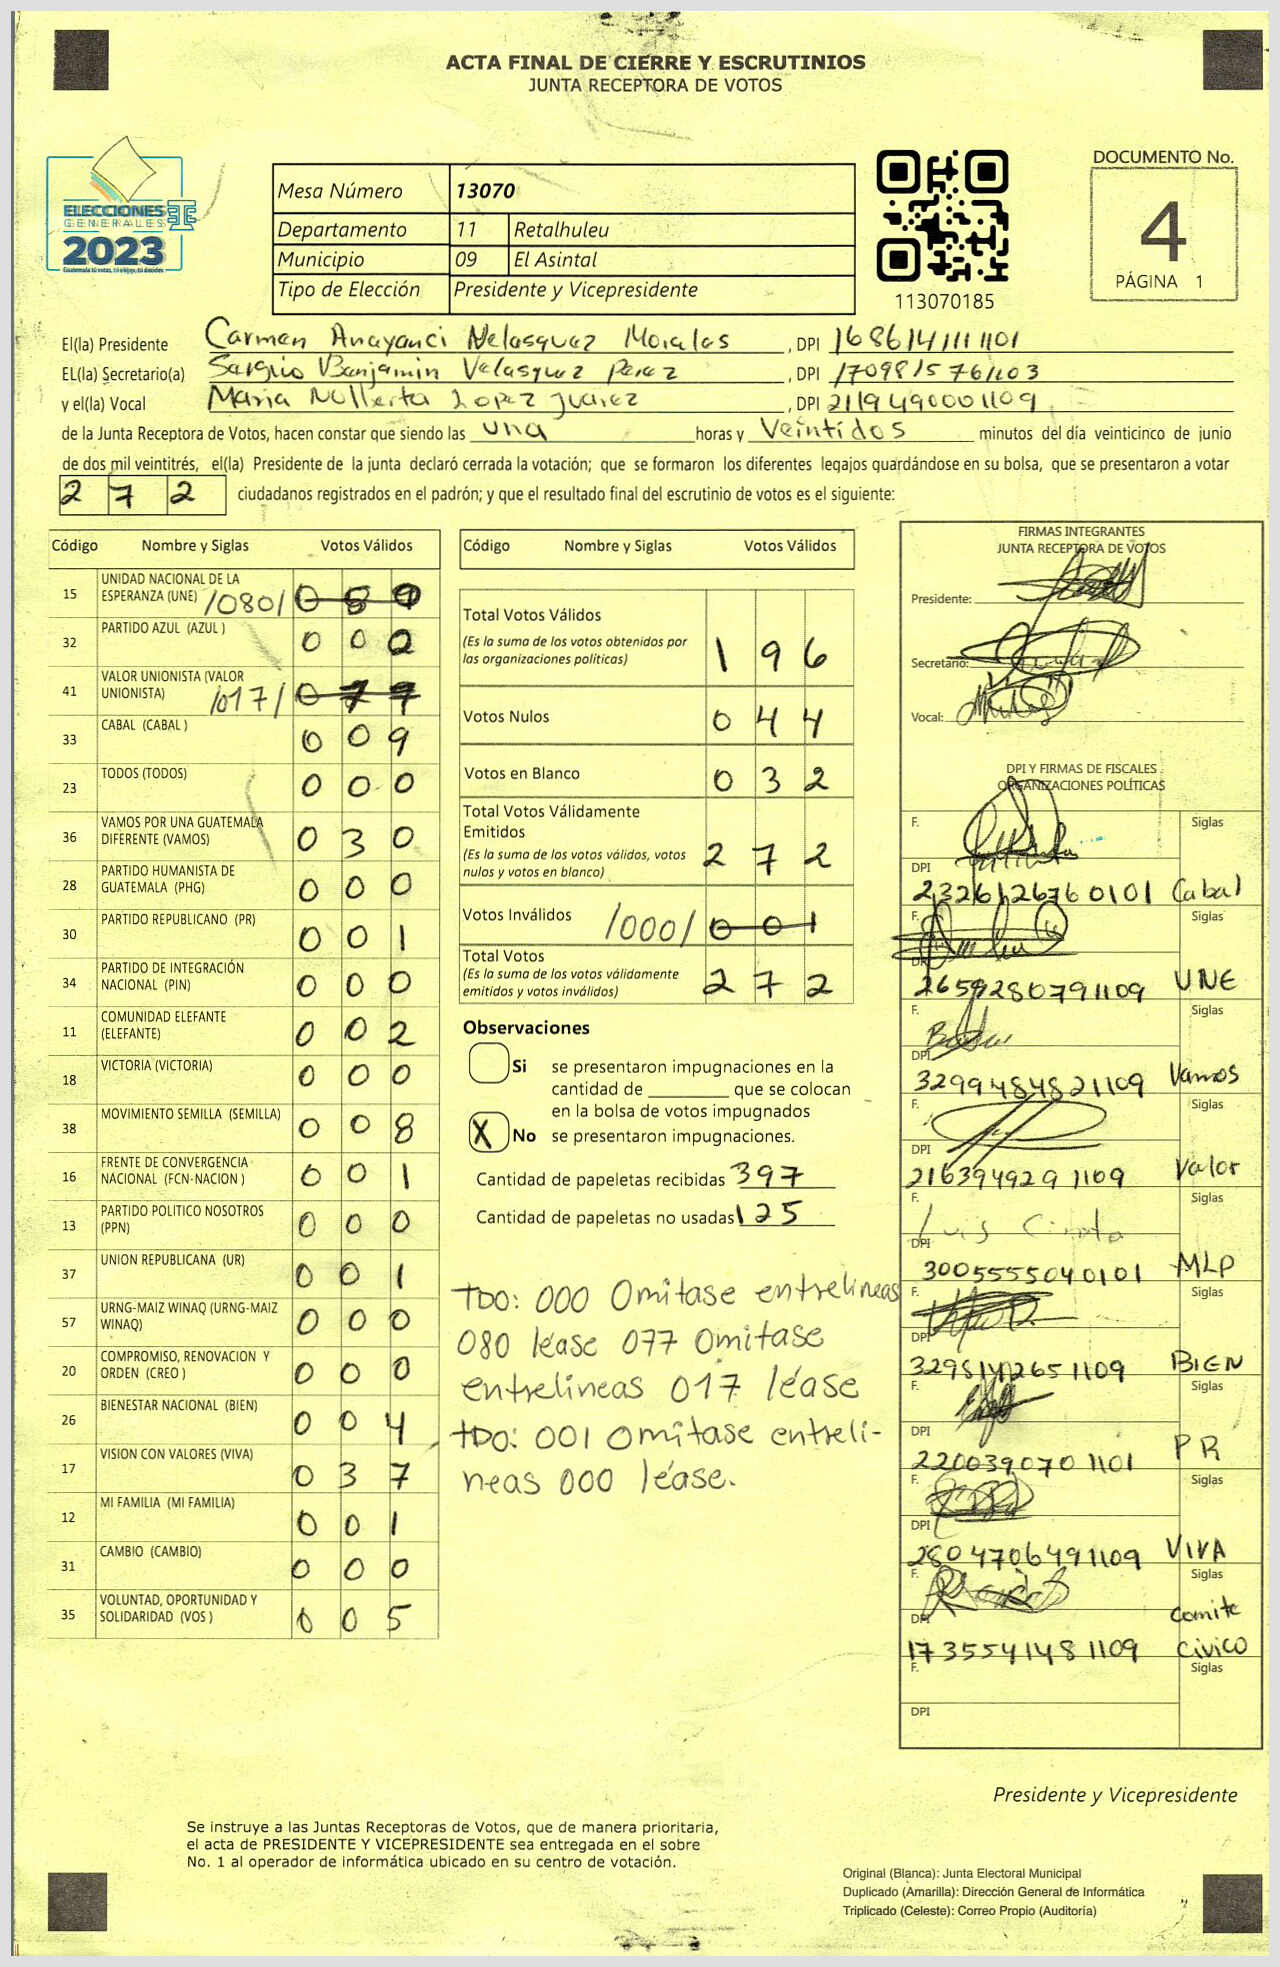 ACTA FINAL DE CIERRE Y ESCRUTINIOS
JUNTA RECEPTORA DE VOTOS
ELECCIONES
GENERALES
2023
Mesa Número 13070
Departamento 11 Retalhuleu
Municipio 09 El Asintal
Tipo de Elección Presidente y Vicepresidente
113070185
DOCUMENTO No.
4
PÁGINA 1
El(la) Presidente Carmen Anayanci Velasquez Morales, DPI 1686141111101
EL(la) Secretario(a) Sergio Benjamin Velasquez Perez, DPI 1709815761103
y el(la) Vocal Maria Lopez Juarez, DPI 2119490001109
de la Junta Receptora de Votos, hacen constar que siendo las una horas y Veintidos minutos del día veinticinco de junio
de dos mil veintitrés, el(la) Presidente de la junta declaró cerrada la votación; que se formaron los diferentes legajos guardándose en su bolsa, que se presentaron a votar
272 ciudadanos registrados en el padrón; y que el resultado final del escrutinio de votos es el siguiente:
Código Nombre y Siglas Votos Válidos
15 UNIDAD NACIONAL DE LA
ESPERANZA (UNE) /080/
32 PARTIDO AZUL (AZUL ) 000
41 VALOR UNIONISTA (VALOR
UNIONISTA) /017/ 077
33 CABAL (CABAL ) 009
23 TODOS (TODOS) 000
36 VAMOS POR UNA GUATEMALA
DIFERENTE (VAMOS) 030
28 PARTIDO HUMANISTA DE
GUATEMALA (PHG) 000
30 PARTIDO REPUBLICANO (PR) 001
34 PARTIDO DE INTEGRACIÓN
NACIONAL (PIN) 000
11 COMUNIDAD ELEFANTE
(ELEFANTE) 002
18 VICTORIA (VICTORIA) 000
38 MOVIMIENTO SEMILLA (SEMILLA) 008
16 FRENTE DE CONVERGENCIA
NACIONAL (FCN-NACION ) 001
13 PARTIDO POLITICO NOSOTROS
(PPN) 000
37 UNION REPUBLICANA (UR) 001
57 URNG-MAIZ WINAQ (URNG-MAIZ
WINAQ) 000
20 COMPROMISO, RENOVACION Y
ORDEN (CREO ) 000
26 BIENESTAR NACIONAL (BIEN) 004
17 VISION CON VALORES (VIVA) 037
12 MI FAMILIA (MI FAMILIA) 001
31 CAMBIO (CAMBIO) 000
35 VOLUNTAD, OPORTUNIDAD Y
SOLIDARIDAD (VOS ) 005
Código Nombre y Siglas Votos Válidos
Total Votos Válidos
(Es la suma de los votos obtenidos por
las organizaciones políticas) 196
Votos Nulos 044
Votos en Blanco 032
Total Votos Válidamente
Emitidos
(Es la suma de los votos válidos, votos
nulos y votos en blanco) 272
Votos Inválidos /000/ 001
Total Votos
(Es la suma de los votos válidamente
emitidos y votos inválidos) 272
Observaciones
Si se presentaron impugnaciones en la
cantidad de ________ que se colocan
en la bolsa de votos impugnados
X No se presentaron impugnaciones.
Cantidad de papeletas recibidas 397
Cantidad de papeletas no usadas 125
TDO: 000 Omitase entrelineas
080 léase 077 Omitase
entrelineas 017 léase
TDO: 001 Omitase entreli-
neas 000 léase.
FIRMAS INTEGRANTES
JUNTA RECEPTORA DE VOTOS
Presidente:
Secretario:
Vocal:
DPI Y FIRMAS DE FISCALES
ORGANIZACIONES POLÍTICAS
F. Siglas
DPI
2326126760101 Cabal
F. Siglas
DPI
2659280791109 UNE
F. Siglas
DPI
3299484821109 Vamos
F. Siglas
DPI
2163949291109 Valor
F. Luis Siglas
DPI
3005555040101 MLP
F. Siglas
DPI
3298142651109 BIEN
F. Siglas
DPI
2200390701101 PR
F. Siglas
DPI
2804706491109 VIVA
F. Siglas
DPI
1735541481109 Comite Civico
F. Siglas
DPI
Presidente y Vicepresidente
Se instruye a las Juntas Receptoras de Votos, que de manera prioritaria,
el acta de PRESIDENTE Y VICEPRESIDENTE sea entregada en el sobre
No. 1 al operador de informática ubicado en su centro de votación.
Original (Blanca): Junta Electoral Municipal
Duplicado (Amarilla): Dirección General de Informática
Triplicado (Celeste): Correo Propio (Auditoría)